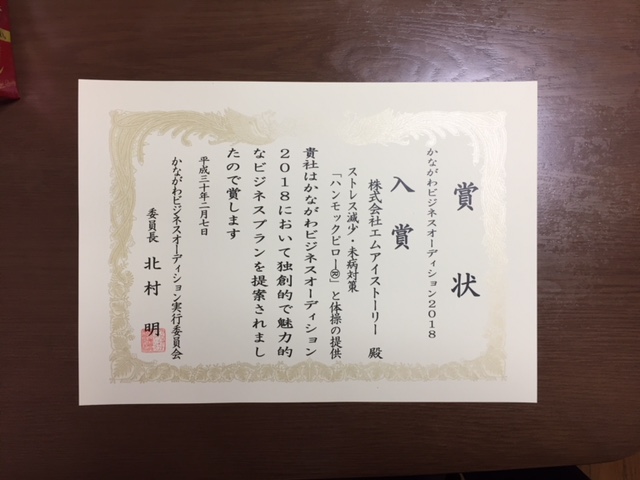 賞状
かながわビジネスオーディション2018
入賞
株式会社エムアイストーリー 殿
ストレス減少・未病対策
「ハンモックピロー®」と体操の提供
貴社はかながわビジネスオーディション
2018において独創的で魅力的
なビジネスプランを提案されまし
たので賞します
平成三十年二月七日
かながわビジネスオーディション実行委員会
委員長 北村 明